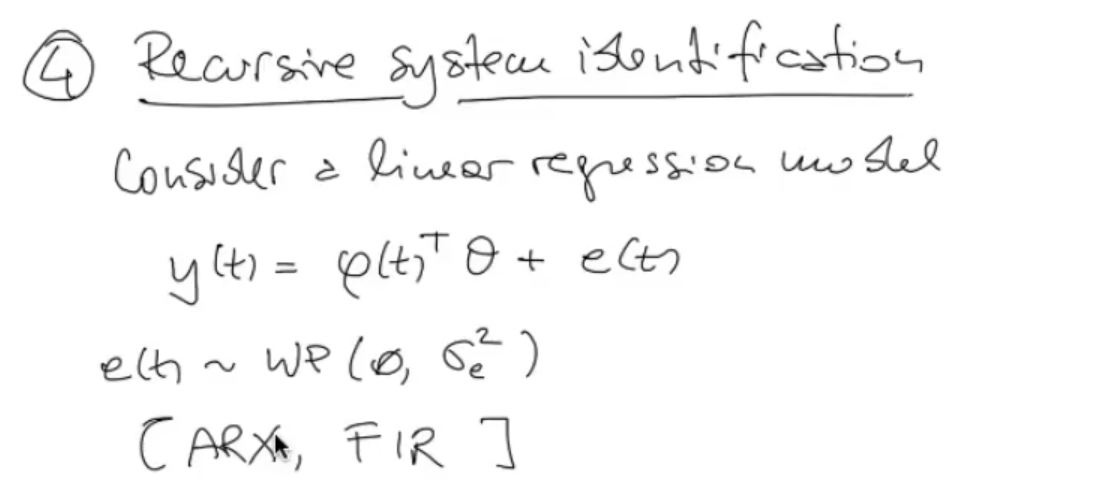 ④ Recursive system identification
Consider a linear regression model
y(t) = φ(t)ᵀ θ + e(t)
e(t) ~ WP (0, σₑ²)
[ARX, FIR]